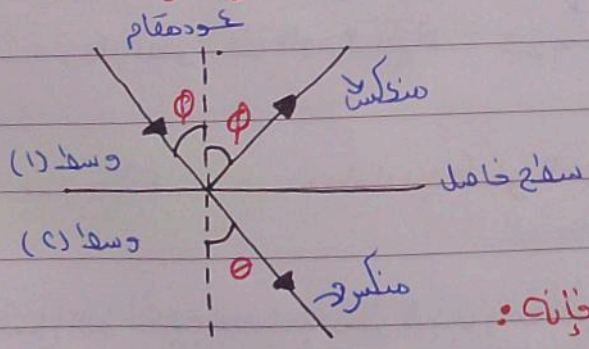 عمود مقام
φ φ
منعكس
وسط (١)
سطح فاصل
وسط (٢)
θ
منكسر
فإنه :